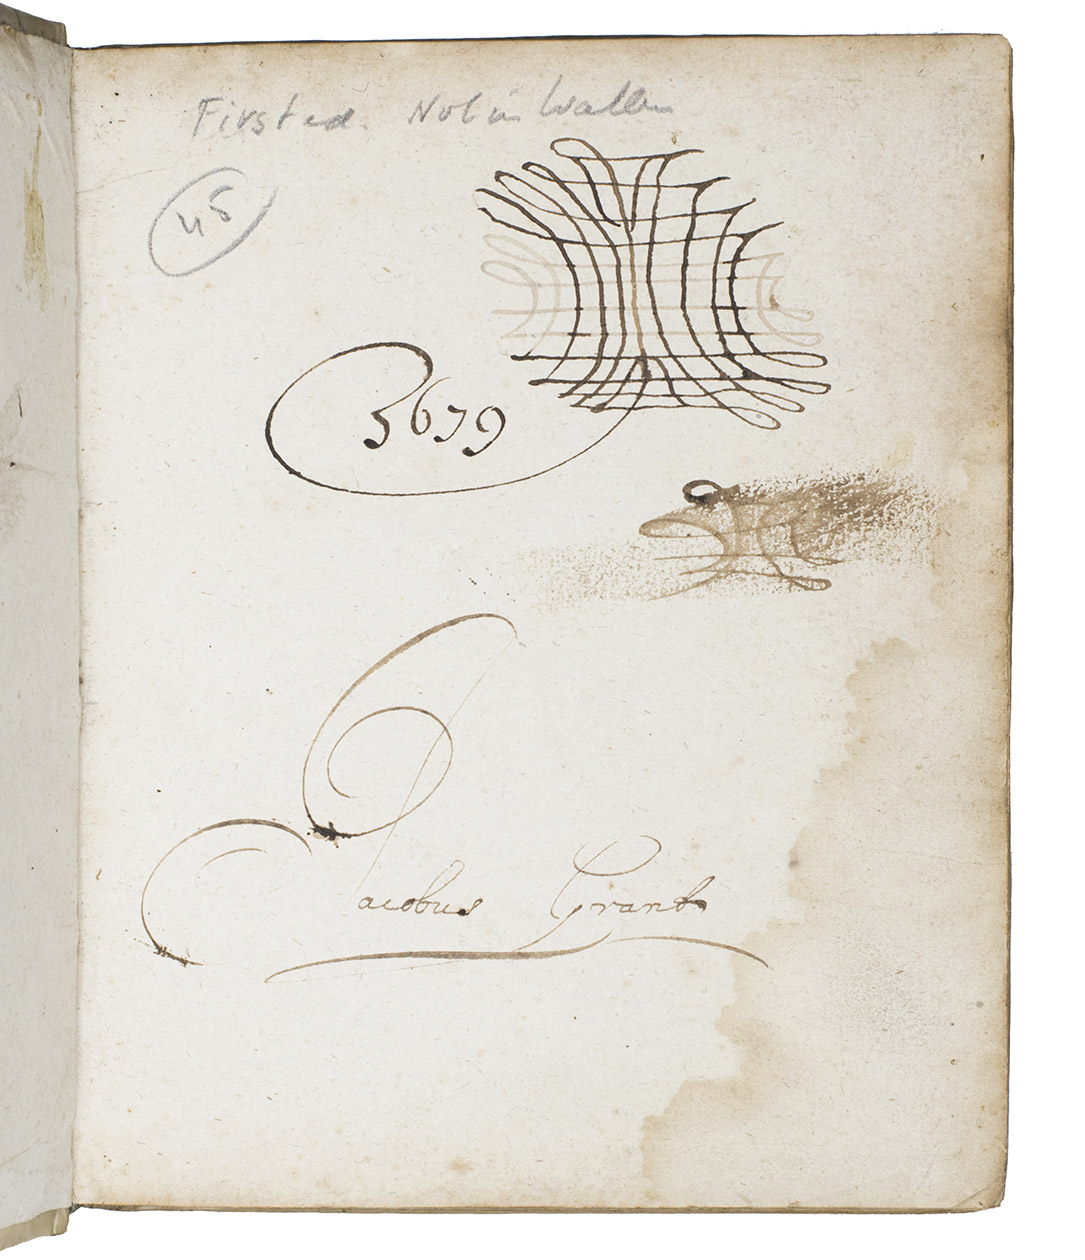 First ed. Not in Waller
45
5679
Jacobus Grant